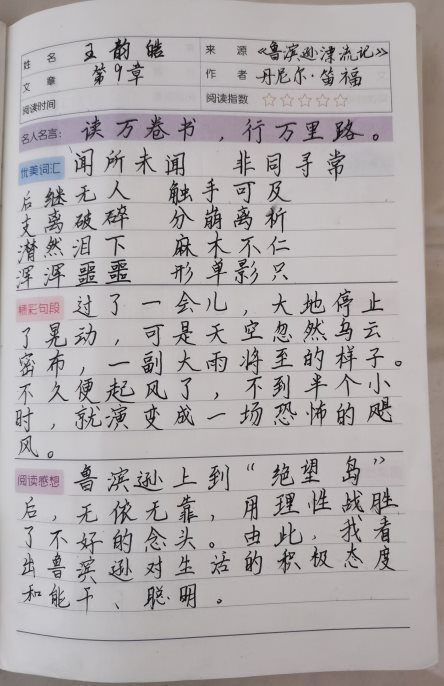 姓 名 王韵皓 来 源 《鲁滨逊漂流记》
文 章 第9章 作 者 丹尼尔·笛福
阅读时间 阅读指数 ☆☆☆☆☆
名人名言: 读万卷书，行万里路。
优美词汇 闻所未闻 非同寻常
后继无人 触手可及
支离破碎 分崩离析
潸然泪下 麻木不仁
浑浑噩噩 形单影只
精彩句段 过了一会儿，大地停止
了晃动，可是天空忽然乌云
密布，一副大雨将至的样子。
不久便起风了，不到半个小
时，就演变成一场恐怖的飓
风。
阅读感想 鲁滨逊上到“绝望岛”
后，无依无靠，用理性战胜
了不好的念头。由此，我看
出鲁滨逊对生活的积极态度
和能干、聪明。